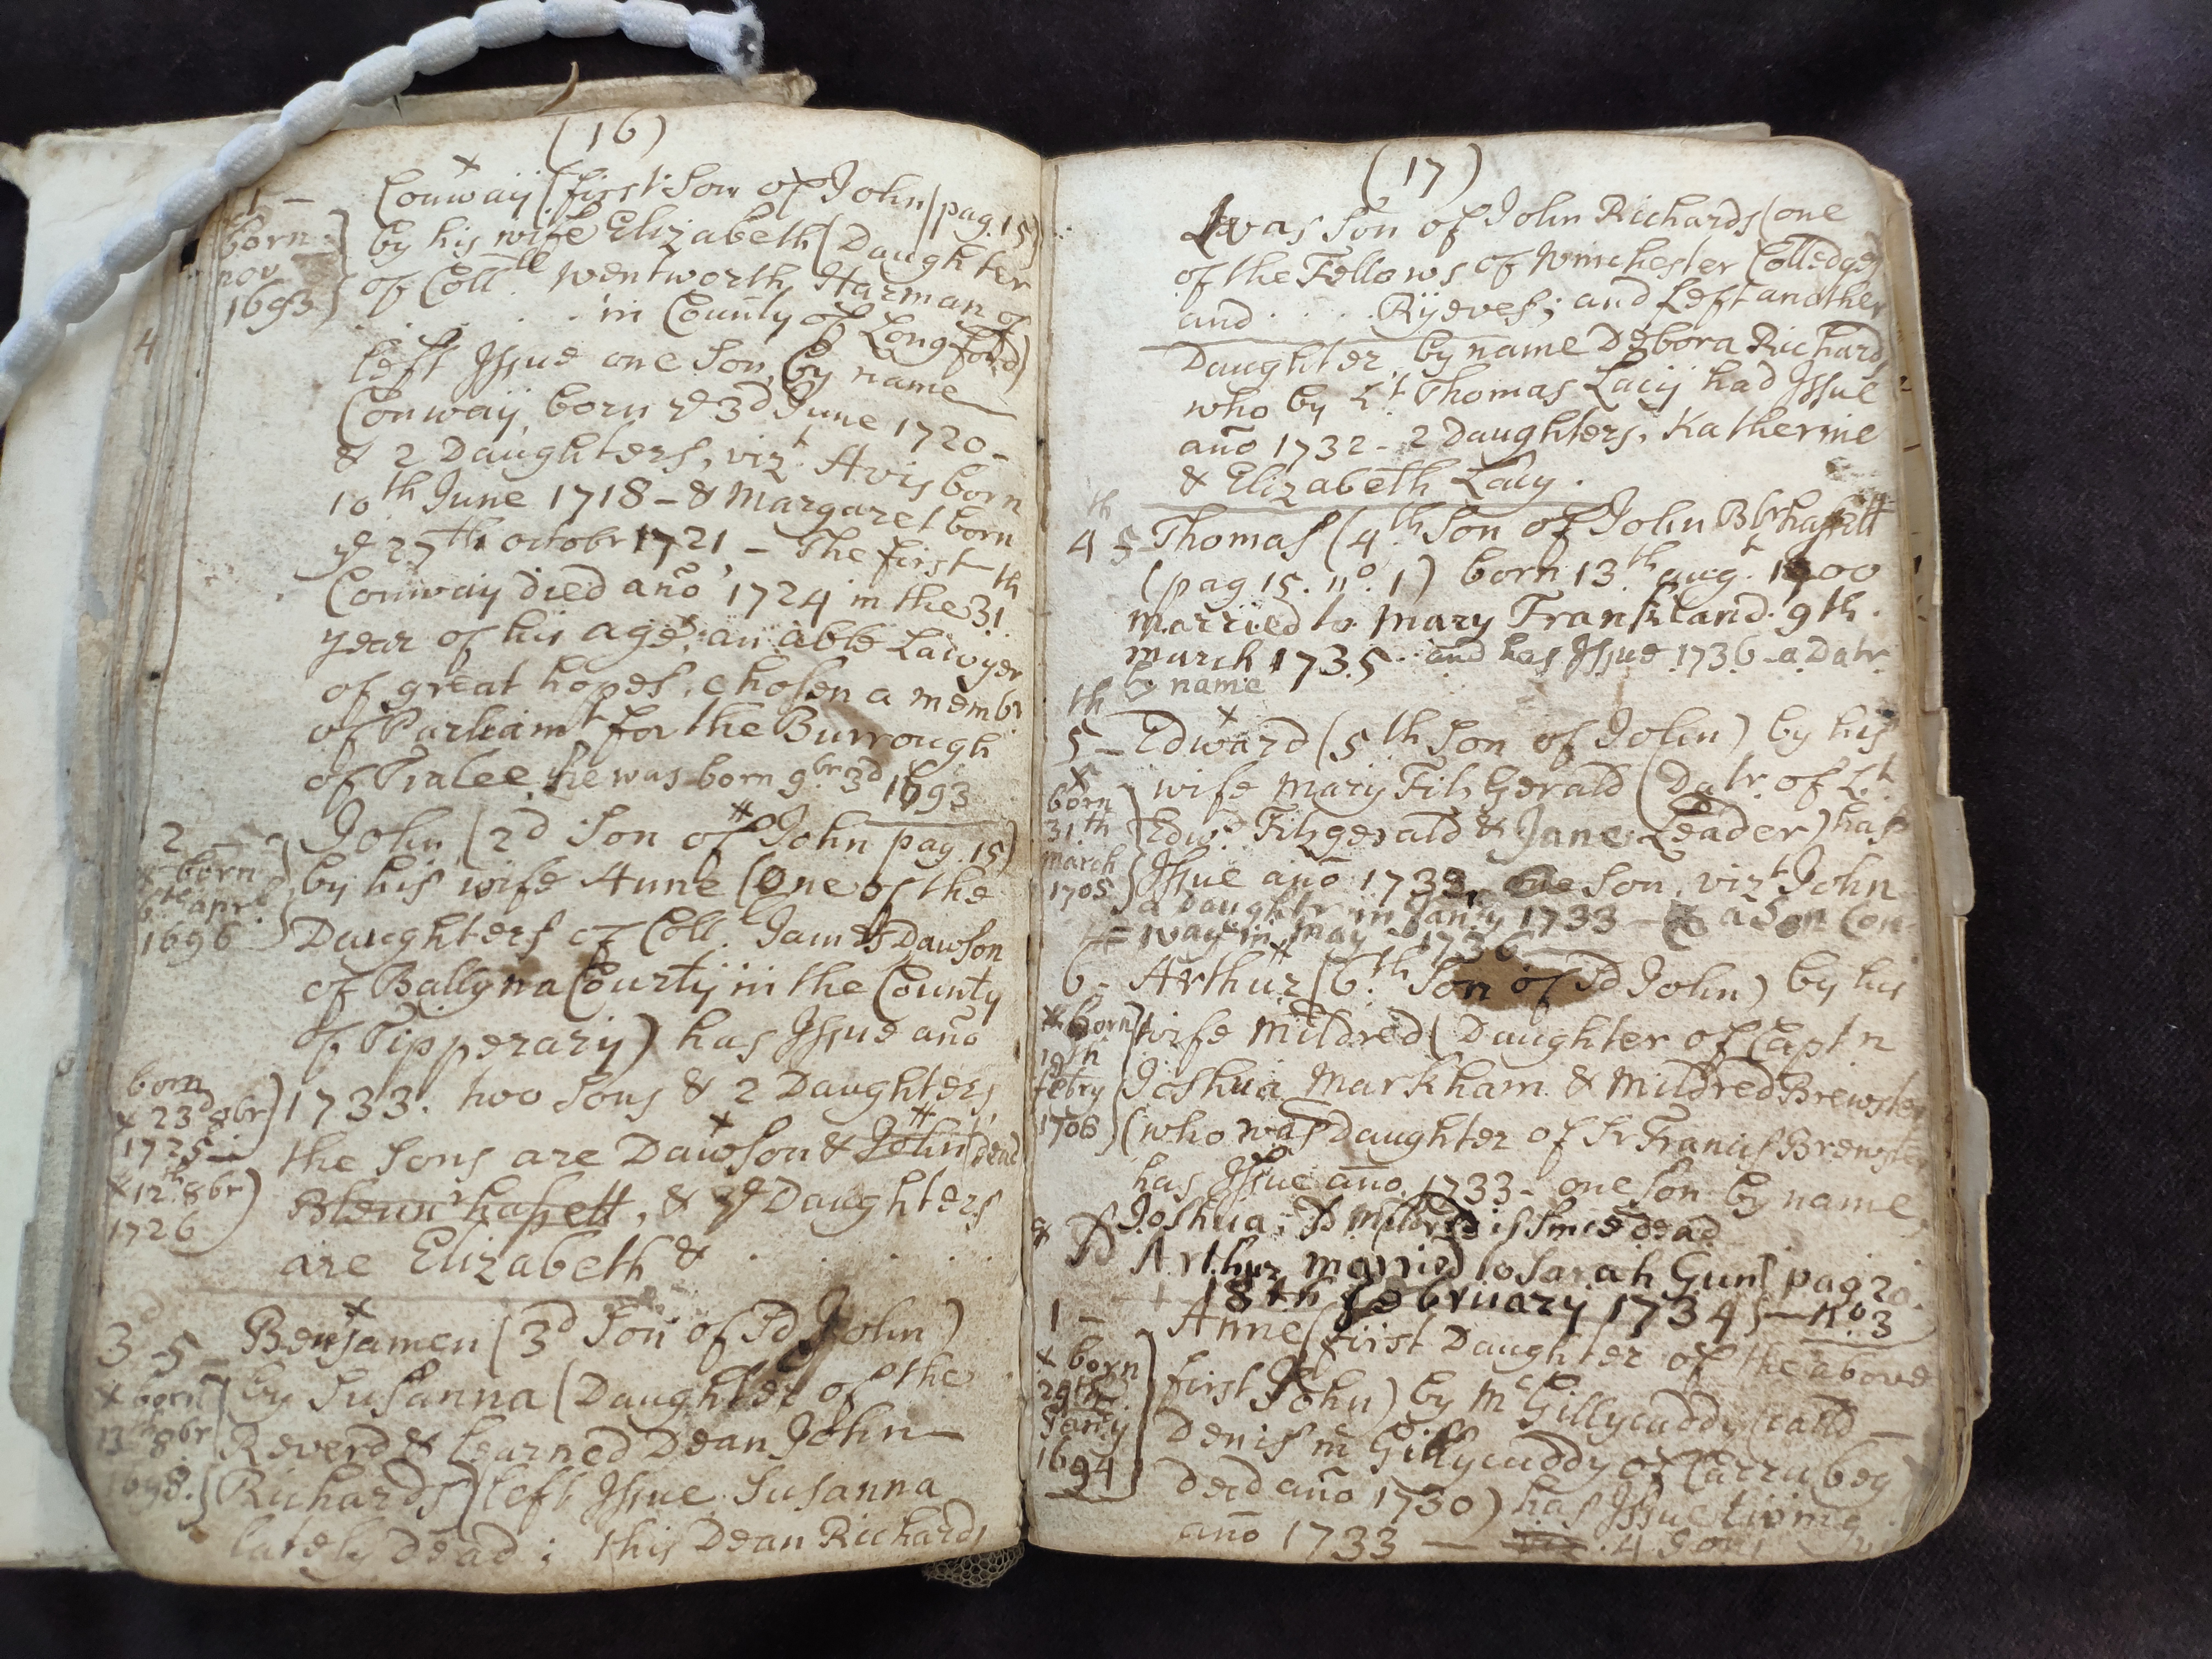 (16)
1 - Conway (first Son of John (pag. 15)
born nov 1693
by his wife Elizabeth (Daughter
of Coll. Wentworth Harman of
. . . . . in County of Longford)
left Issue one Son, by name
Conway, born ye 3d June 1720 -
& 2 Daughters, vizt. Avis born
10th June 1718 - & Margaret born
ye 27th octobr 1721, - The first
Conway died año 1724 in the 31th
year of his age; an able Lawyer
of great hopes, chosen a membr
of Parliamt for the Burrough
of Tralee, he was born 9br. 3d 1693
2 John (2d Son of John pag. 15)
x born 6th aprl. 1696
by his wife Anne (One of the
Daughters of Coll. James Dawson
of Ballynacourty in the County
of Tipperary) has Issue año
born x 23d 8br 1725
1733. two Sons & 2 Daughters,
the Sons are Dawson & John (dead
x 12th. 8br 1726
Blennrhassett, & ye Daughters
are Elizabeth & . . . . .
3d 5 - Benjamen (3d Son of Sd John)
x born 13th 8br 1698.
by Susanna (Daughter of the
Reverd & Learned Dean John
Richards) left Issue Susanna
lately dead; this Dean Richards
(17)
was Son of John Richards (one
of the Fellows of Winchester Colledge)
and . . . . Ryeves; and left another
Daughter, by name Debora Richards
who by Lt Thomas Lacy had Issue
año 1732 - 2 Daughters, Katherine
& Elizabeth Lacy.
4th 5 - Thomas (4th Son of John Blrhassett
(pag 15. no. 1) born 13th augt. 1700
married to Mary Frankland 9th.
march 1735 . and has Issue 1736 - a Datr.
by name
5th - Edward (5th Son of John) by his
x born 31th march 1705
wife Mary Fitz Gerald (Datr. of Lt
Edwd. Fitzgerald & Jane Leader) has
Issue año 1733, one Son, vizt John
a Daughtr in Janry 1733 - & a Son Con=
=way in may 1736
6 - Arthur (6th Son of Sd John) by his
born 19th febry 1706
wife Mildred (Daughter of Captn
Joshua Markham & Mildred Brewster
(who was Daughter of Sr Francis Brewster
has Issue año. 1733 - one Son by name
Joshua; Sd Mildred is Since dead
& Sd Arthur married to Sarah Gun pag 20.
18th february 1734/5 - no. 3
1 - Anne (first Daughter of the above
x born 29th Janry 1694
first John) by McGillycuddy (calld
Denis mcGillycuddy of Carrubeg
dead año 1730) has Issue living
año 1733 - 4 Sons